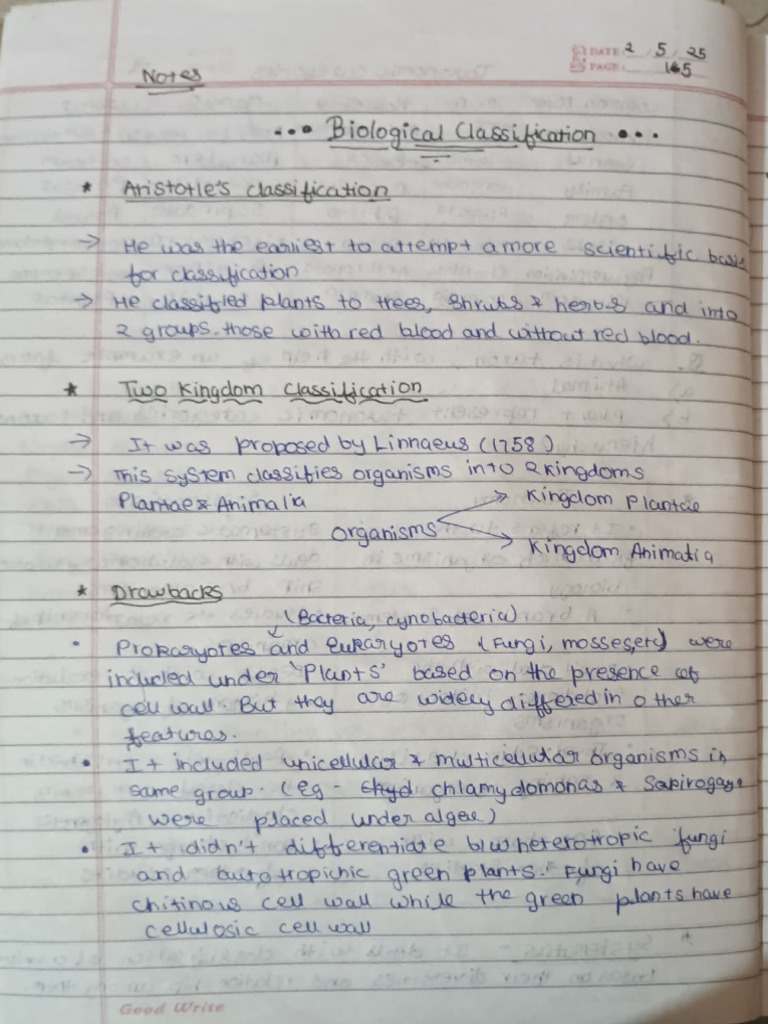 Notes
DATE 2 5 25
PAGE 165
... Biological Classification ...
* Aristotle's classification
→ He was the earliest to attempt a more scientific basis
for classification
→ He classified plants to trees, shrubs & herbs and into
2 groups. those with red blood and without red blood.
* Two Kingdom Classification
→ It was proposed by Linnaeus (1758)
→ This system classifies organisms into 2 kingdoms
Plantae & Animalia
Kingdom Plantae
organisms
Kingdom Animalia
* Drawbacks
(Bacteria, cynobacteria)
• Prokaryotes and Eukaryotes (Fungi, mosses, etc) were
included under 'Plants' based on the presence of
cell wall. But they are widely differed in other
features.
• It included unicellular & multicellular organisms in
same group. (Eg - chlamydomonas & Sapirogaye
were placed under algee)
• It didn't differentiate b/w heterotropic fungi
and autotropichic green plants. Fungi have
chitinous cell wall while the green plants have
cellulosic cell wall
Good Write